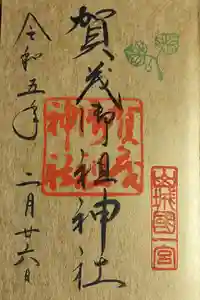 山城國一宮
賀茂御祖神社
賀茂御祖神社
令和五年 二月廿六日